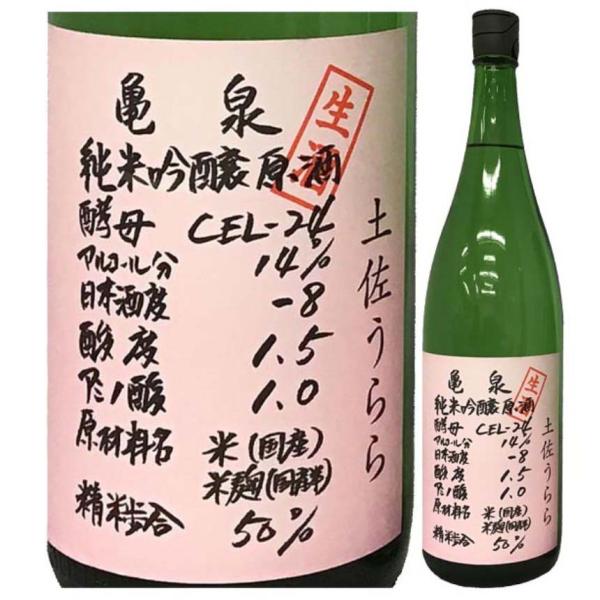 亀泉
生酒
純米吟醸原酒
酵母 CEL-24
アルコール分 14%
日本酒度 -8
酸度 1.5
アミノ酸 1.0
原材料名 米(国産)
米麹(同縣)
精米歩合 50%
土佐うらら
亀泉
生酒
純米吟醸原酒
酵母 CEL-24
アルコール分 14%
日本酒度 -8
酸度 1.5
アミノ酸 1.0
原材料名 米(国産)
米麹(同縣)
精米歩合 50%
土佐うらら